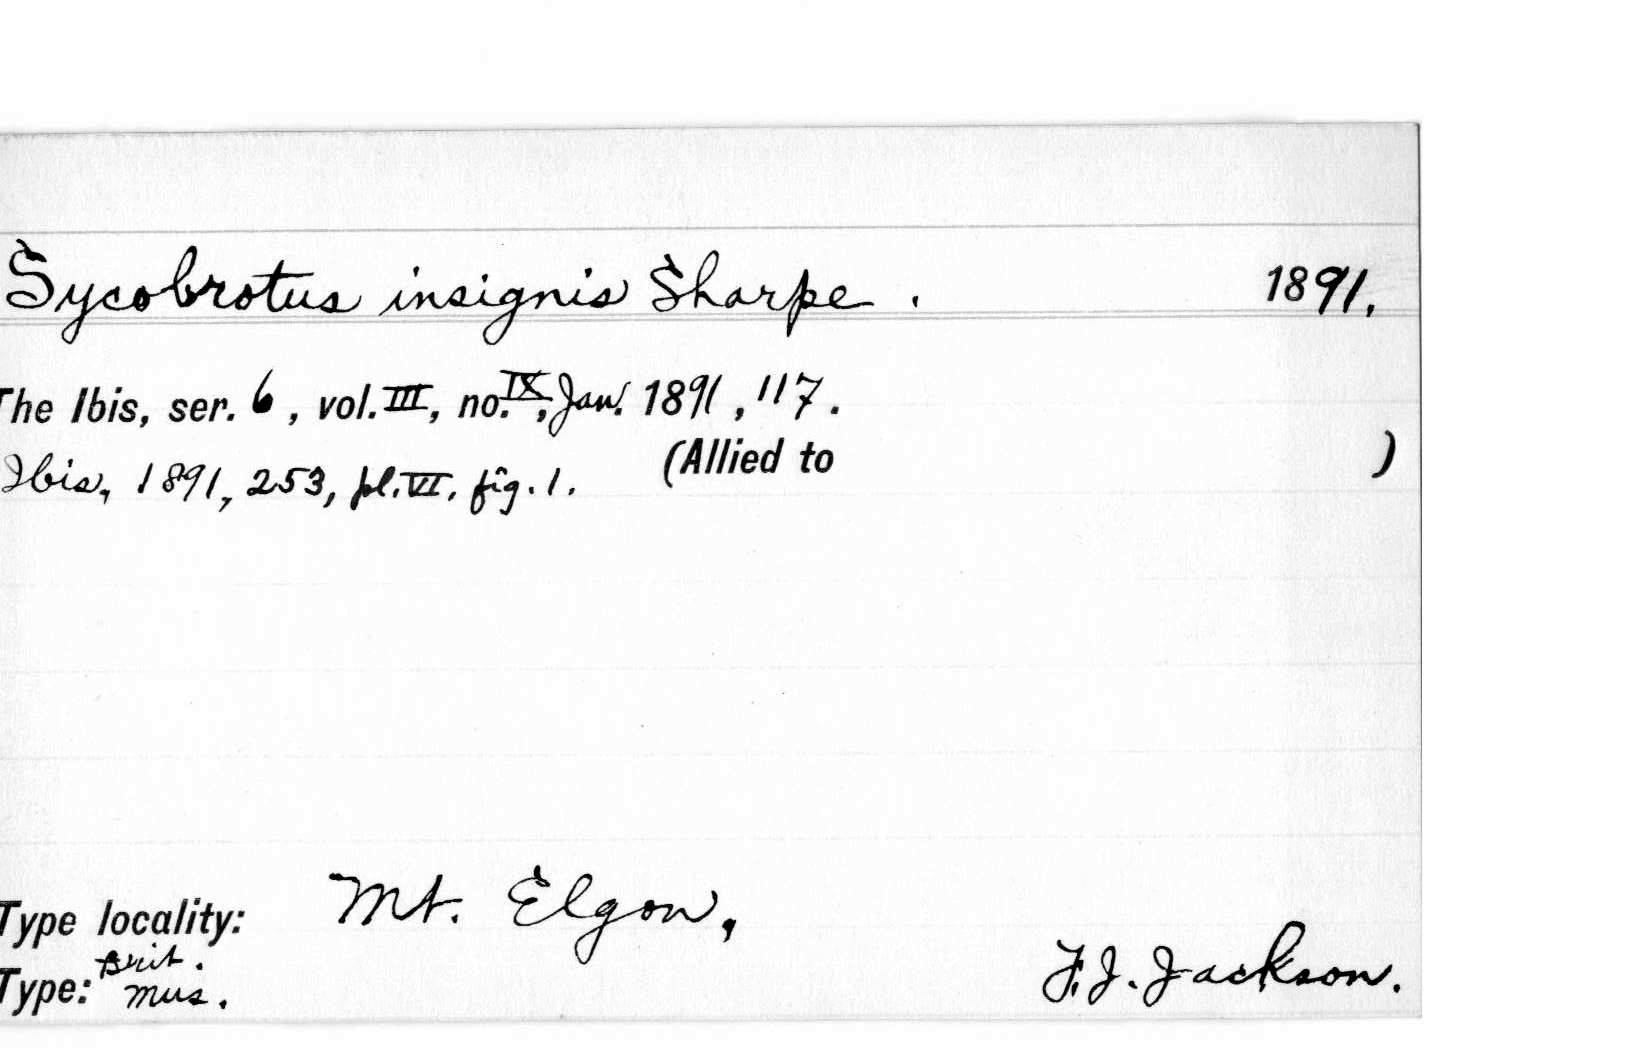 Sycobrotus insignis Sharpe . 1891.
The Ibis, ser. 6, vol. III, no. IX, Jan. 1891, 117.
(Allied to )
Ibis, 1891, 253, pl. VI. fig. 1.
Type locality: Mt. Elgon,
Type: Brit. Mus.
F. J. Jackson.